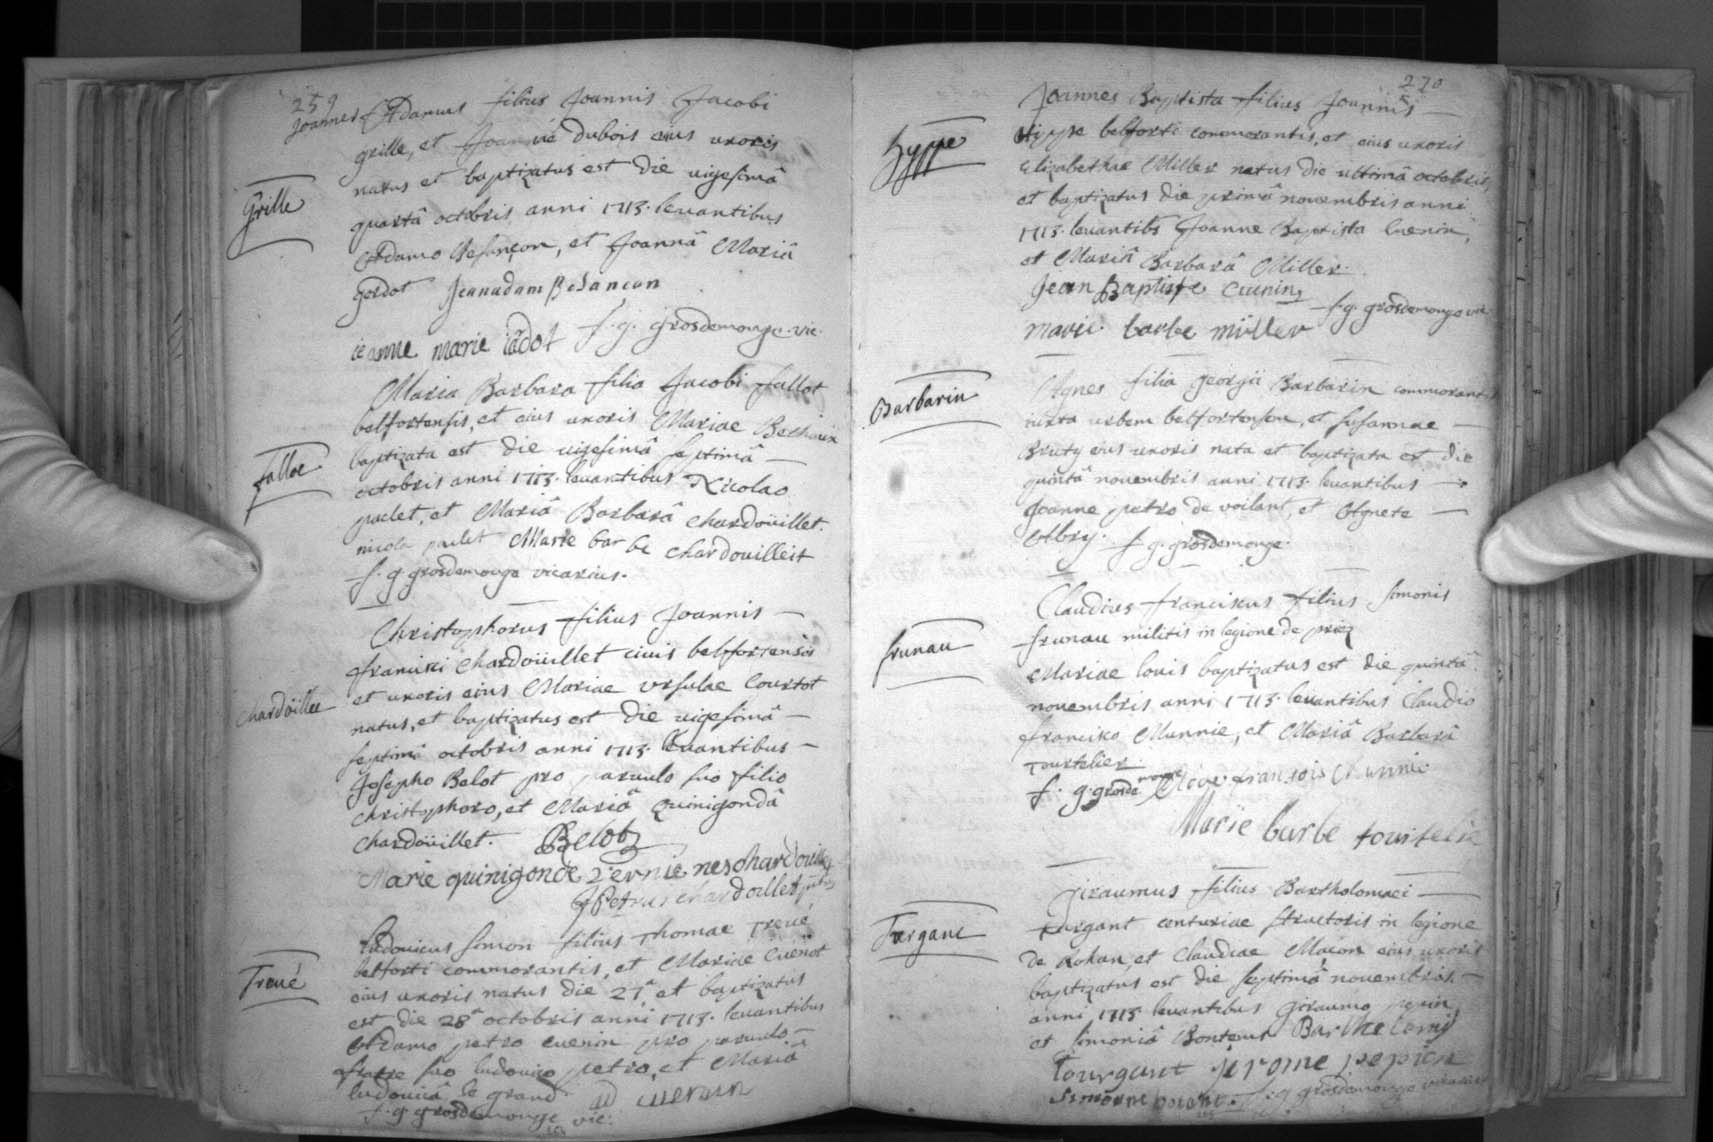 259
Joannes Adamus filius Joannis Jacobi
grille, et Joannae dubois eius uxoris
natus et baptizatus est die vigesimâ
Grille
quartâ octobris anni 1713. levantibus
Adamo Besançon, et Joannâ Mariâ
godot Jean adam Besancon
ieanne marie iadot f. g. grosdemouge vic.
Maria Barbara filia Jacobi fallot
belfortensis, et eius uxoris Mariae
fallot
baptizata est die vigesimâ septimâ
octobris anni 1713. levantibus Nicolao
paclet, et Mariâ Barbarâ chardoüillet.
nicola paclet Marie bar be chardouilleit
f. g. grosdemouge vicarius.
Christophorus filius Joannis
francisci chardoüillet civis belfortensis
et uxoris eius Mariae ursulae Courtot
chardoillet
natus, et baptizatus est die vigesimâ
septimâ octobris anni 1713. levantibus
Josepho Belot pro parvulo suo filio
christophoro, et Mariâ quinigondâ
chardoüillet. Belot
Marie quinigonde
Petrus chardoillet
Ludovicus simon filius Thomae Treué
belforti commorantis, et Mariae Cuenot
Treué
eius uxoris natus die 27â et baptizatus
est die 28â octobris anni 1713. levantibus
Adamo petro cuenin pro parvulo
fratre suo ludovico petro, et Mariâ
ludovicâ le grand
f. g. grosdemouge vic.
270
Joannes Baptista filius Joannis
hyppe
Hippe belforti commorantis, et eius uxoris
Elizabethae Miller natus die ultimâ octobris,
et baptizatus die primâ novembris anni
1713. levantibs Joanne Baptista Cuenin,
et Mariâ Barbarâ Miller.
Jean Baptiste Cuenin f. g. grosdemouge vic.
marie barbe müller
Agnes filia Georgii Barbarin commorantis
Barbarin
iuxta urbem belfortensem, et susannae
Bruty eius uxoris nata et baptizata est die
quintâ novembris anni 1713. levantibus
Joanne petro de voilant, et Agnete
Albry. f. g. grosdemouge.
Claudius franciscus filius simonis
frunau
frunau militis in legione de priez
Mariae louis baptizatus est die quintâ
novembris anni 1713. levantibus Claudio
francisco Munnie, et Mariâ Barbarâ
Tourtelier.
f. g. grosdemouge francois Munnie
Marie barbe tourtelie
Giraumus filius Bartholomaei
Turgant
Turgant centuriae structoris in legione
De Rohan, et Claudiae Maçon eius uxoris
baptizatus est die septimâ novembris
anni 1713. levantibus Giraumo pepin
et simoniâ Bontems Barthelemy
Tourgant jerome pepien
simonne f. g. grosdemouge vicarius